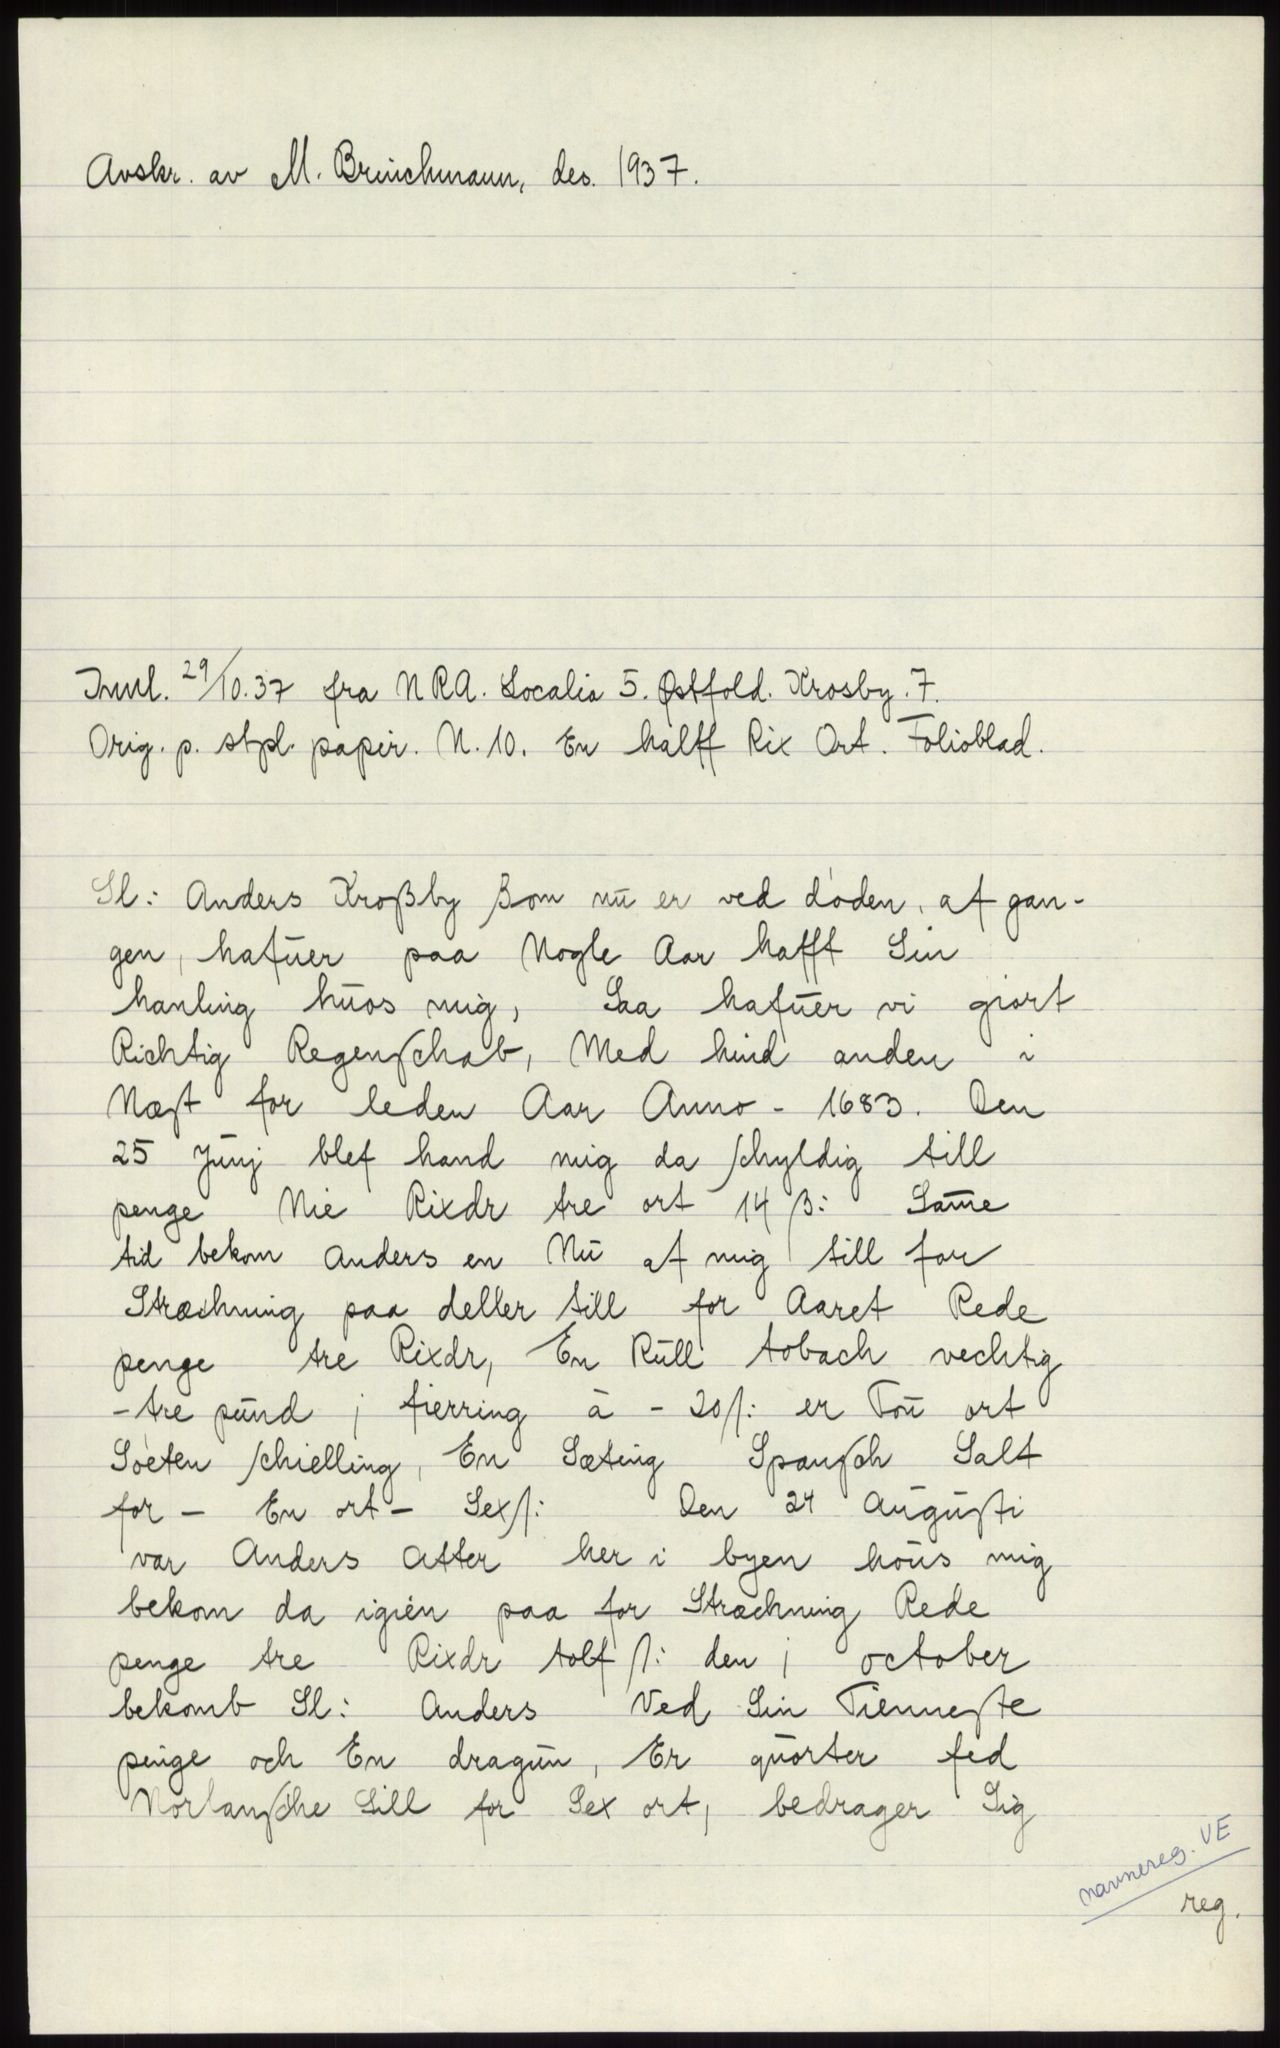 Avskr. av M. Brinchmann, des. 1937.
Innl. 29/10.37 fra NRA. Localia 5. Østfold. Krosby. 7.
Orig. p. stpl. papir. N. 10. En halff Rix Ort. Folioblad.
Sl: Anders Kroßby ßom nū er ved døden, af gan-
gen, hafūer paa Nogle Aar hafft Sin
hanling hūos mig, Saa hafūer vi giort
Richtig Regenschab, Med hind anden i
Næst for leden Aar Anno - 1683. Den
25 Jūnj blef hand mig da schyldig till
penge Nie Rixdr tre ort 14 ß: Same
tid bekom Anders en Nū af mig till for
Stræchning paa deller till for Aaret Rede
penge tre Rixdr, En Rūll tobach vechtig
- tre pūnd j fierring à - 20 ß: er Toū ort
Søeten schielling, En Sæting Spansch Salt
for - En ort - Sex ß: Den 24 Aūgūsti
var Anders Atter her i byen hoūs mig
bekom da igien paa for Stræchning Rede
penge tre Rixdr tolf ß: den j october
bekomb Sl: Anders Ved Sin Tienneste
penge och En dragūn, Er qūorter fed
Norlansche Sill for Sex ort, bedrager Sig
navnereg. VE
reg.